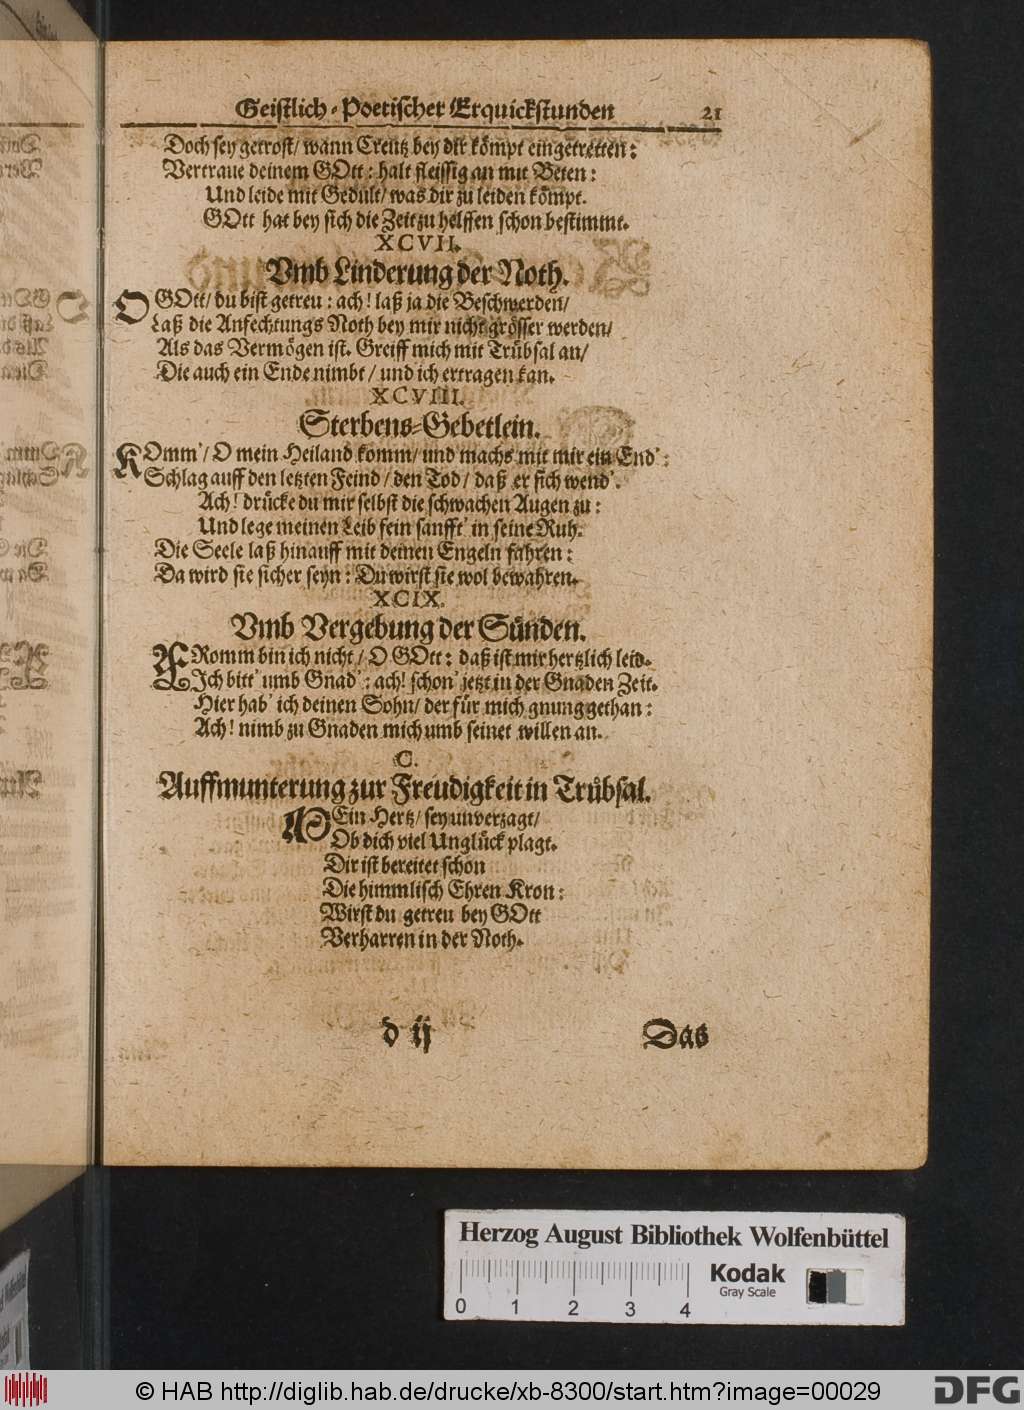 Geistlich-Poetischer Erquickstunden 21
Doch sey getrost/ wann Creutz bey dir kömpt eingetretten:
Vertraue deinem GOtt: halt fleissig an mit Beten:
Und leide mit Gedult/ was dir zu leiden kömpt.
GOtt hat bey sich die Zeit zu helffen schon bestimmt.
XCVII.
Vmb Linderung der Noth.
O GOtt/ du bist getreu: ach! laß ja die Beschwerden/
Laß die Anfechtungs Noth bey mir nicht grösser werden/
Als das Vermögen ist. Greiff mich mit Trübsal an/
Die auch ein Ende nimbt/ und ich ertragen kan.
XCVIII.
Sterbens-Gebetlein.
KOmm'/ O mein Heiland komm/ und machs mit mir ein End':
Schlag auff den letzten Feind/ den Tod/ daß er sich wend'.
Ach! drücke du mir selbst die schwachen Augen zu:
Und lege meinen Leib fein sanfft' in seine Ruh.
Die Seele laß hinauff mit deinen Engeln fahren:
Da wird sie sicher seyn: Du wirst sie wol bewahren.
XCIX.
Vmb Vergebung der Sünden.
FRomm bin ich nicht/ O GOtt: daß ist mir hertzlich leid.
Ich bitt' umb Gnad': ach! schon' jetzt in der Gnaden Zeit.
Hier hab' ich deinen Sohn/ der für mich gnung gethan:
Ach! nimb zu Gnaden mich umb seinet willen an.
C.
Auffmunterung zur Freudigkeit in Trübsal.
MEin Hertz/ sey unverzagt/
Ob dich viel Unglück plagt.
Dir ist bereitet schon
Die himmlisch Ehren Kron:
Wirst du getreu bey GOtt
Verharren in der Noth.
d ij Das
Herzog August Bibliothek Wolfenbüttel
0 1 2 3 4
Kodak
Gray Scale
© HAB http://diglib.hab.de/drucke/xb-8300/start.htm?image=00029
DFG